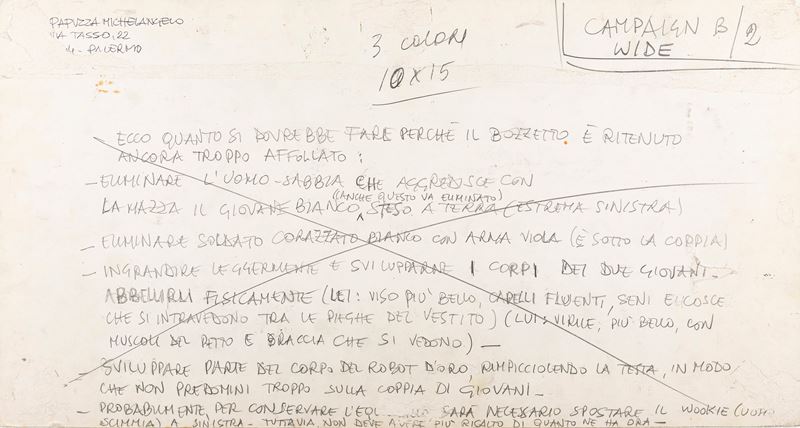 PAPUZZA MICHELANGELO
VIA TASSO, 22
PALERMO
3 COLORI
10X15
CAMPAIGN B/2
WIDE
ECCO QUANTO SI DOVREBBE FARE PERCHÈ IL BOZZETTO È RITENUTO
ANCORA TROPPO AFFOLLATO:
- ELIMINARE L'UOMO-SABBIA CHE AGGREDISCE CON
(ANCHE QUESTO VA ELIMINATO)
LA MAZZA IL GIOVANE BIANCO, STESO A TERRA (ESTREMA SINISTRA)
- ELIMINARE SOLDATO CORAZZATO BIANCO CON ARMA VIOLA (È SOTTO LA COPPIA)
- INGRANDIRE LEGGERMENTE E SVILUPPARNE I CORPI DEI DUE GIOVANI -
ABBELLIRLI FISICAMENTE (LEI: VISO PIU' BELLO, CAPELLI FLUENTI, SENI E COSCE
CHE SI INTRAVEDONO TRA LE PIEGHE DEL VESTITO) (LUI: VIRILE, PIU' BELLO, CON
MUSCOLI DEL PETTO E BRACCIA CHE SI VEDONO) -
- SVILUPPARE PARTE DEL CORPO DEL ROBOT D'ORO, RIMPICCIOLENDO LA TESTA, IN MODO
CHE NON PREDOMINI TROPPO SULLA COPPIA DI GIOVANI -
- PROBABILMENTE, PER CONSERVARE SARÀ NECESSARIO SPOSTARE IL WOOKIE (UOMO
SCIMMIA) A SINISTRA - TUTTAVIA NON DEVE AVERE PIU' RISALTO DI QUANTO NE HA ORA -